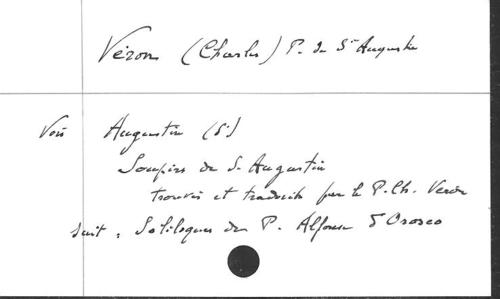 Véron (Charles) P. de St Augustin
Voir Augustin (St)
Soupirs de S. Augustin
trouvés et traduits par le P. Ch. Veron
suit : Soliloques du P. Alfonse d'Orosco